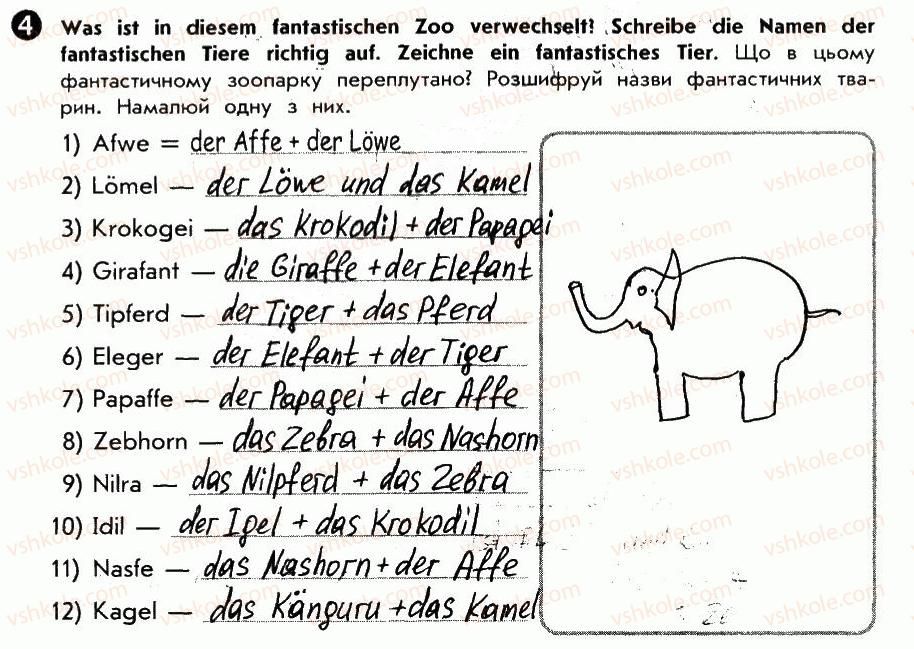 4 Was ist in diesem fantastischen Zoo verwechselt? Schreibe die Namen der
fantastischen Tiere richtig auf. Zeichne ein fantastisches Tier. Що в цьому
фантастичному зоопарку переплутано? Розшифруй назви фантастичних тва-
рин. Намалюй одну з них.
1) Afwe = der Affe + der Löwe
2) Lömel — der Löwe und das Kamel
3) Krokogei — das Krokodil + der Papagei
4) Girafant — die Giraffe + der Elefant
5) Tipferd — der Tiger + das Pferd
6) Eleger — der Elefant + der Tiger
7) Papaffe — der Papagei + der Affe
8) Zebhorn — das Zebra + das Nashorn
9) Nilra — das Nilpferd + das Zebra
10) Idil — der Igel + das Krokodil
11) Nasfe — das Nashorn + der Affe
12) Kagel — das Känguru + das Kamel